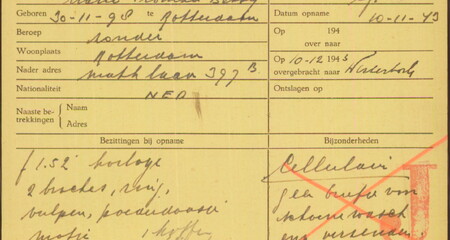 Geboren 30-11-98 te Rotterdam
Datum opname 10-11-43
Beroep zonder
Op 194
over naar
Woonplaats Rotterdam
Nader adres Mathlaan 397 B.
Op 10-12 1943
overgebracht naar Westerbork
Nationaliteit NED
Ontslagen op
Naaste be-
trekkingen
Naam
Adres
Bezittingen bij opname
Bijzonderheden
f 1.52 horloge
2 broches, ring,
vulpen, poederdoosje
Cellulair
geen briefje van
schoone wasch